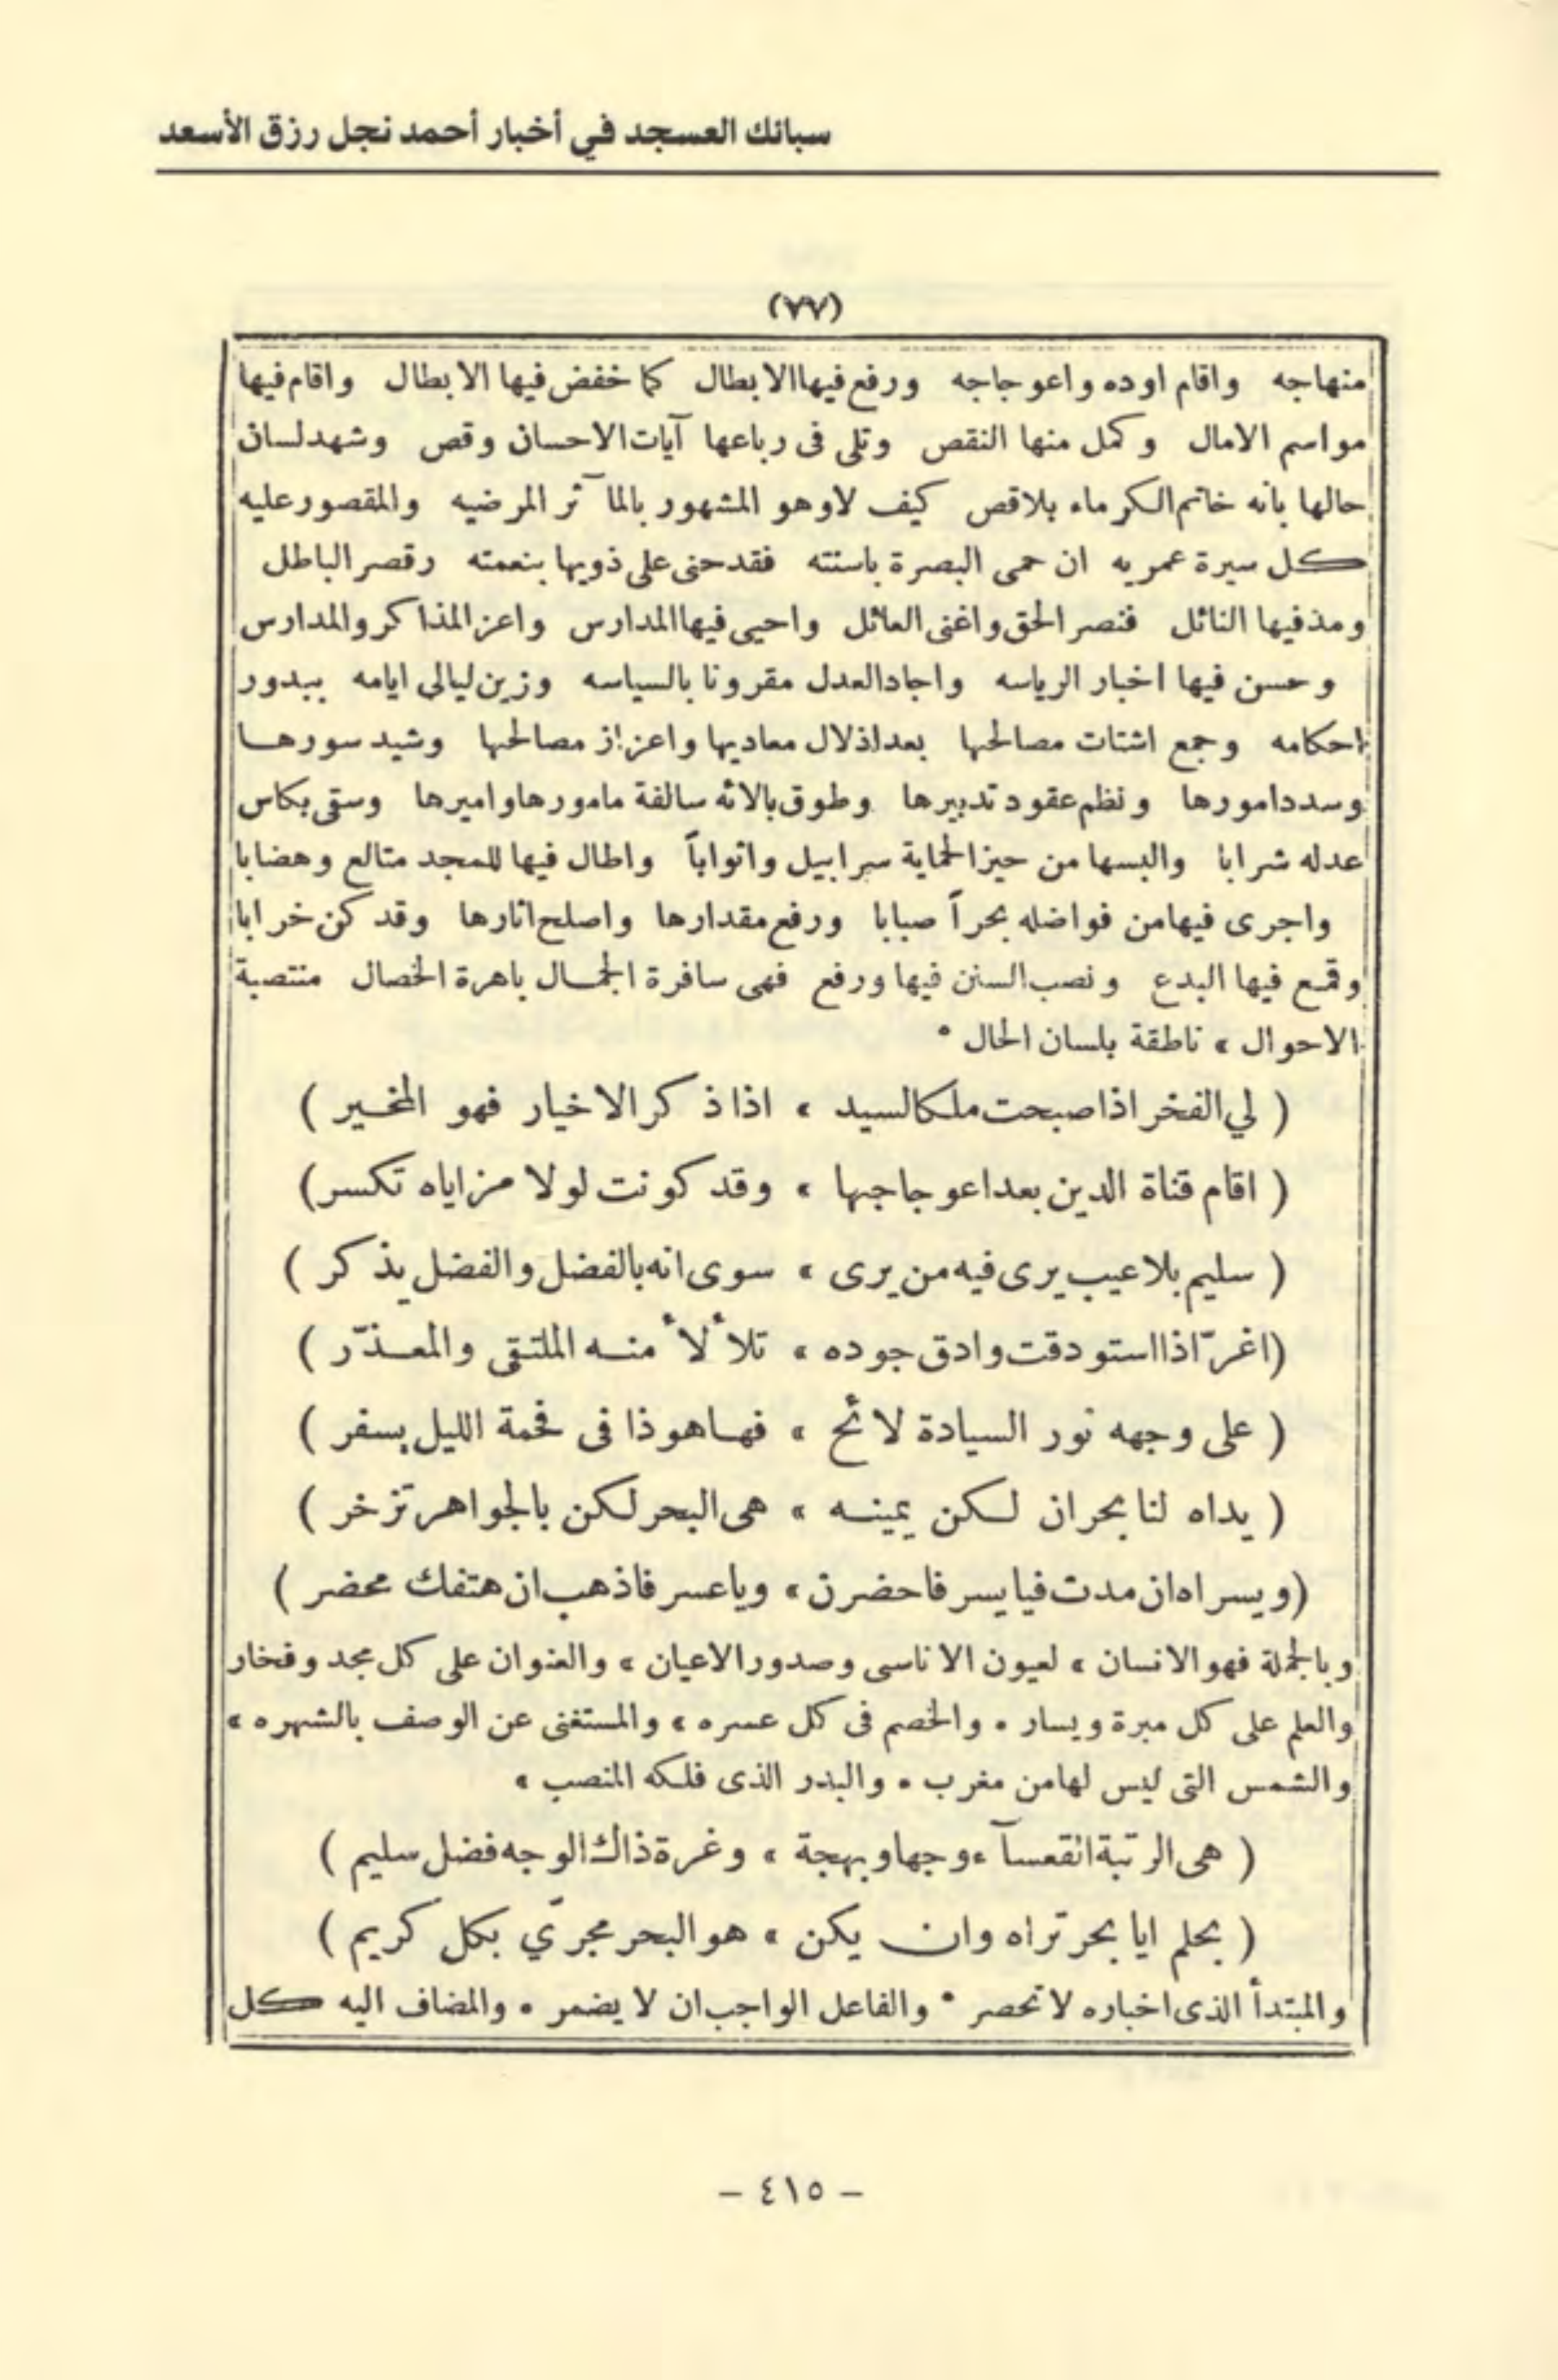 سبائك العسجد في أخبار أحمد نجل رزق الأسعد
(٧٧)
منهاجه واقام اوده واعوجاجه ورفع فيها الابطال كما خفض فيها الابطال واقام فيها
مواسم الامال وكمل منها النقص وتلى فى رباعها آيات الاحسان وقص وشهد لسان
حالها بانه خاتم الكرماء بلاقص كيف لاوهو المشهور بالمآثر المرضيه والمقصور عليه
كل سيرة عمريه ان حمى البصرة باسنته فقد حنى على ذويها بنعمته رقصر الباطل
ومذفيها النائل فنصر الحق واغنى العائل واحيى فيها المدارس واعز المذاكر والمدارس
وحسن فيها اخبار الرياسه واجاد العدل مقرونا بالسياسه وزين ليالى ايامه ببدور
احكامه وجمع اشتات مصالحها بعد اذلال معاديها واعزاز مصالحها وشيد سورها
وسدد امورها ونظم عقود تدبيرها وطوق بالائه سالفة مامورها واميرها وسقى بكاس
عدله شرابا والبسها من حيز الحماية سرابيل واثواباً واطال فيها للمجد متالع وهضابا
واجرى فيها من فواضله بحراً صبابا ورفع مقدارها واصلح اثارها وقد كن خرابا
وقمع فيها البدع ونصب السنن فيها ورفع فهى سافرة الجمال باهرة الخصال منتصبة
الاحوال » ناطقة بلسان الحال *
( لي الفخر اذا صبحت ملكا لسيد » اذا ذكر الاخيار فهو المخير )
( اقام قناة الدين بعد اعوجاجها » وقد كونت لولا مزاياه تكسر )
( سليم بلا عيب يرى فيه من يرى » سوى انه بالفضل والفضل يذكر )
( اغرّ اذا استودقت وادق جوده » تلأ لأ منه الملتقى والمعذّر )
( على وجهه نور السيادة لائح » فها هوذا فى فحمة الليل يسفر )
( يداه لنا بحران لكن يمينه » هى البحر لكن بالجواهر تزخر )
( ويسراه ان مدت فيا يسر فاحضرن » ويا عسر فاذهب ان هتفك محضر )
وبالجملة فهو الانسان » لعيون الاناسى وصدور الاعيان » والعنوان على كل مجد وفخار
والعلم على كل مبرة ويسار • والخصم فى كل عسره » والمستغنى عن الوصف بالشهره »
والشمس التى ليس لها من مغرب • والبدر الذى فلكه المنصب »
( هى الرتبة انقعسآء وجها وبهجة » وغرة ذاك الوجه فضل سليم )
( بحلم ايا بحر تراه وان يكن » هو البحر مجرّي بكل كريم )
والمبتدأ الذى اخباره لا تحصر * والفاعل الواجب ان لا يضمر • والمضاف اليه كل
– ٤١٥ –